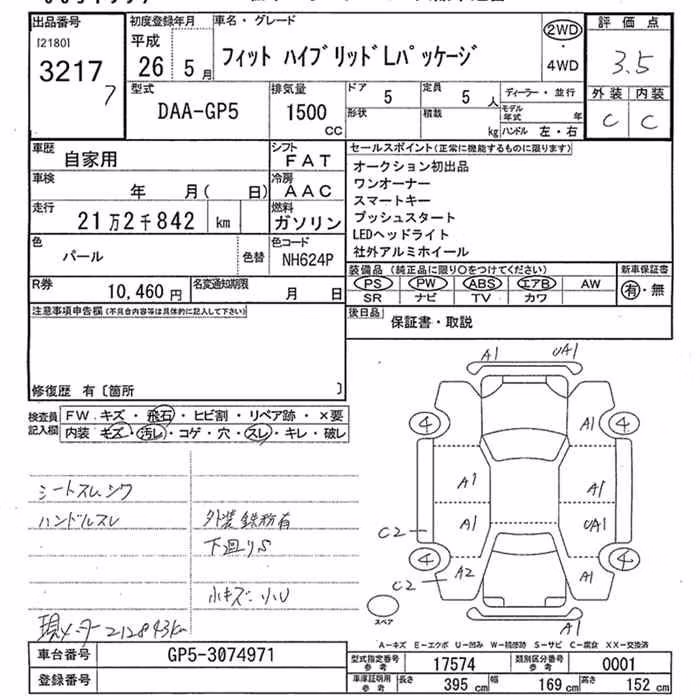 出品番号 初度登録年月 車名・グレード 評価点
[2180]
3217
7
平成
26 5月
フィット ハイブリッドLパッケージ
2WD
・
4WD
3.5
外装 内装
C C
型式
DAA-GP5
排気量
1500
CC
ドア
5
定員
5 人
ディーラー・並行
形状
積載
kg
モデル年式 年
ハンドル 左・右
車歴 自家用
シフト
FAT
セールスポイント(正常に機能するものに限ります)
車検 年 月( 日)
冷房
AAC
オークション初出品
ワンオーナー
スマートキー
プッシュスタート
LEDヘッドライト
社外アルミホイール
走行 21万2千842 km
燃料
ガソリン
色
パール
色替
色コード
NH624P
装備品(純正品に限り○をつけてください)
新車保証書
PS PW ABS エアB AW
有・無
SR ナビ TV カワ
R券
10,460 円
名変通知期限
月 日
後日品
保証書・取説
注意事項申告欄(不具合内容等は具体的に記入して下さい)
修復歴 有〔箇所 〕
検査員
記入欄
FW キズ・飛石・ヒビ割・リペア跡・×要
内装 キズ・汚レ・コゲ・穴・スレ・キレ・破レ
シートスレ、シワ
ハンドルスレ
外装鉄粉有
下廻りS
小キズ・小U
現メーター212843km
A1 UA1
4 A1 4
A1 A1
A1 UA1
C2
4 4
C2 A2 A1
A1
スペア
A-キズ E-エクボ U-凹み W-補修跡 S-サビ C-腐食 XX-交換済
車台番号 GP5-3074971
型式指定番号
参考
17574
類別区分番号
参考
0001
登録番号
車庫証明用
参考
長さ 395 cm 幅 169 cm 高さ 152 cm